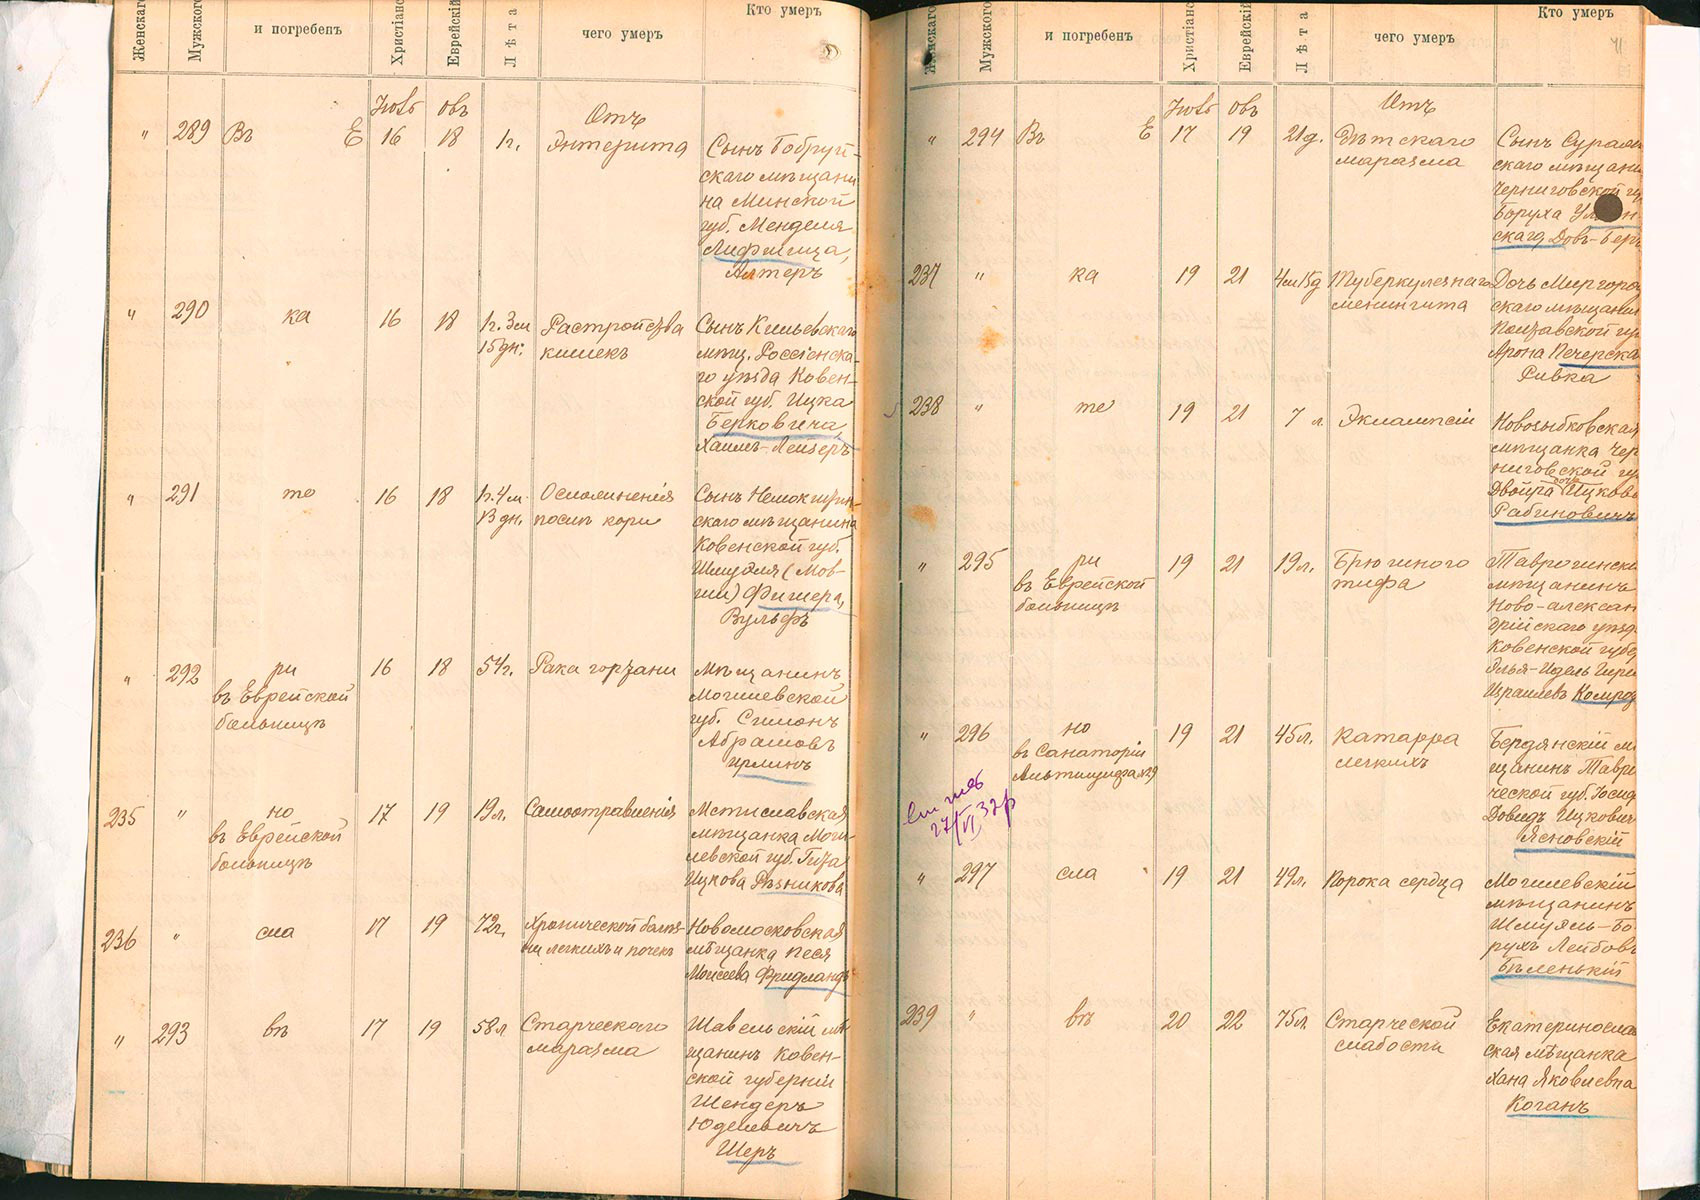 Женскаго
Мужского
и погребенъ
Христіанс
Еврейскій
Лѣта
чего умеръ
Кто умеръ
Нояб овъ
Отъ
" 289 Въ Е 16 18 1г. Энтерита
Сынъ Бобруй-
скаго мѣщани
на Минской
губ. Менделя
Лифшица,
Алтеръ
" 290 ка 16 18 1г. 3м
15дн. Растройства
кишекъ
го уѣзда Ковен-
ской губ. Ицка
Берковича,
Хаимъ-Лейзеръ
" 291 то 16 18 1г. 4м.
13 дн. Осложненія
послѣ кори
скаго мѣщанина
Ковенской губ.
Шмуэля (Мов-
ши) Фишера,
Вульфъ
" 292 ри
въ Еврейской
больницѣ
16 18 54г. Рака гортани
Мѣщанинъ
Могилевской
губ. Симонъ
Абрамовъ
Ирлинъ
235 " но
въ Еврейской
больницѣ
17 19 19л. Самоотравленія
Мстиславская
мѣщанка Моги-
левской губ.
Ицкова Рѣзникова
236 " сла 17 19 72г. Хронической болѣз-
ни легкихъ и почекъ
Новомосковская
мѣщанка Песя
Моисеева Фридландъ
" 293 въ 17 19 58л Старческаго
маразма
Шавельскій мѣ-
щанинъ Ковен-
ской губерніи
Шендеръ
Юделевичъ
Шеръ
Женскаго
Мужского
и погребенъ
Христіанс
Еврейскій
Лѣта
чего умеръ
Кто умеръ
41
Нояб овъ
Отъ
" 294 Въ Е 17 19 21д. Дѣтскаго
маразма
Сынъ Суражс
скаго мѣщани
Черниговской гу
Боруха
скаго, Довъ-Беръ
237 " ка 19 21 4м 15д Туберкулезнаго
менингита
Дочь Миргород
скаго мѣщанина
Полтавской гу
Арона Печерска
Ривка
238 " то 19 21 7 л Эклампсіи
Новозыбковская
мѣщанка Чер
ниговской гу
Двойра Ицкова
Рабиновичъ
" 295 ри
въ Еврейской
больницѣ
19 21 19л. Брюшного
тифа
мѣщанинъ
Ново-алексан
дрійскаго уѣзд
Ковенской губе
Израилевъ
" 296 но
въ Санаторіи
Альтшуллера
19 21 45л. Катарра
легкихъ
Бердянскій м
щанинъ Таври
ческой губ. Іосиф
Довидъ Ицкович
Ясновскій
27/VI 37г
" 297 сла 19 21 49л. Порока сердца
Могилевскій
мѣщанинъ
Шмуэль-Бо
рухъ Лейбовъ
Бѣленькій
239 " въ 20 22 75л. Старческой
слабости
Екатериносла
ская мѣщанка
Хана Яковлевна
Коганъ